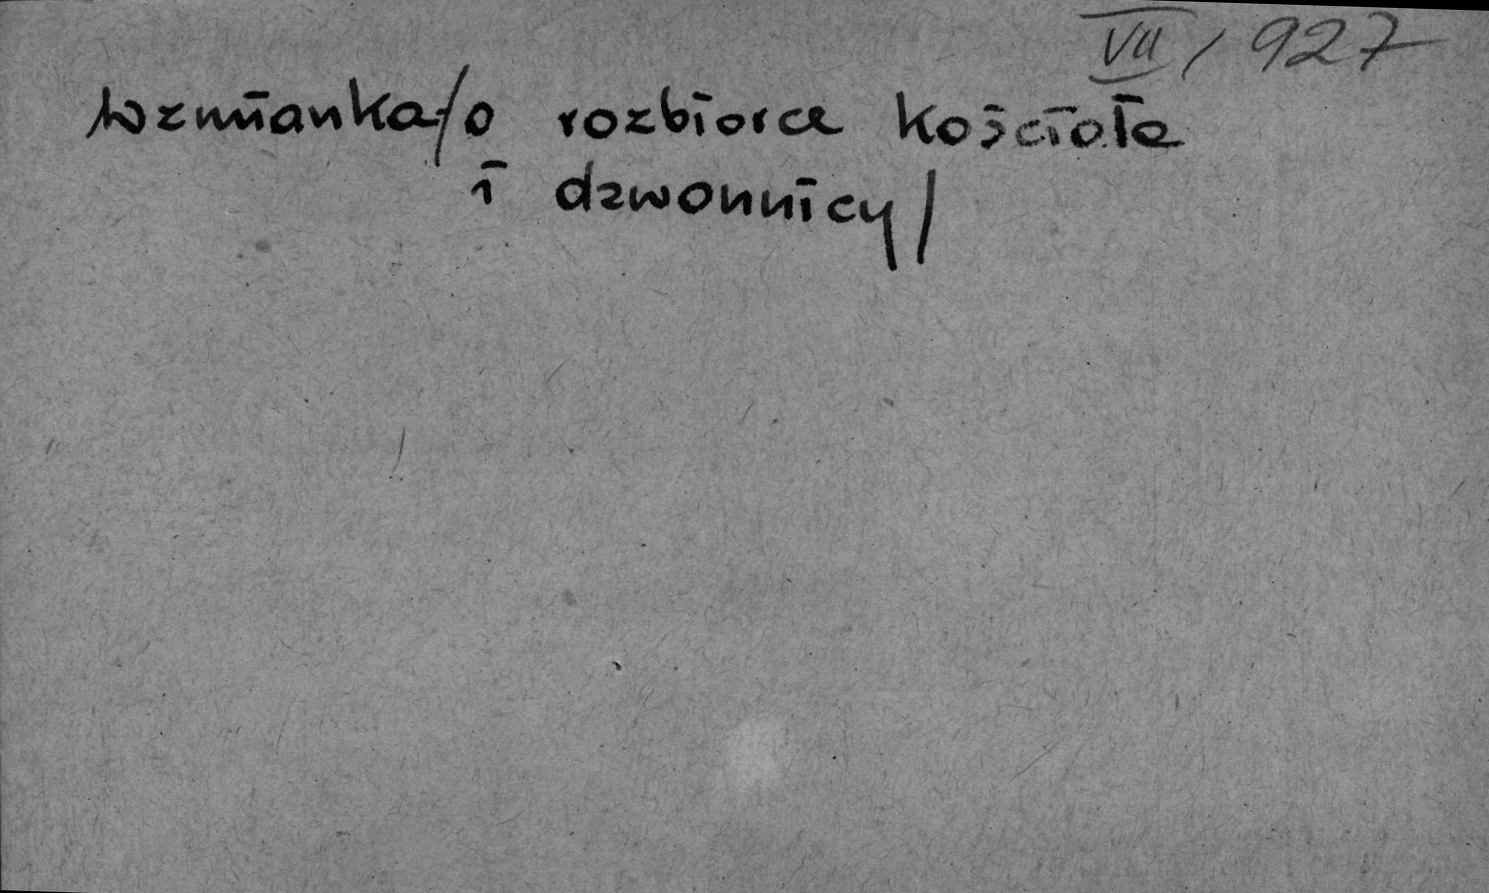 VII, 927
wzmianka /o rozbiórce kościoła
i dzwonnicy/